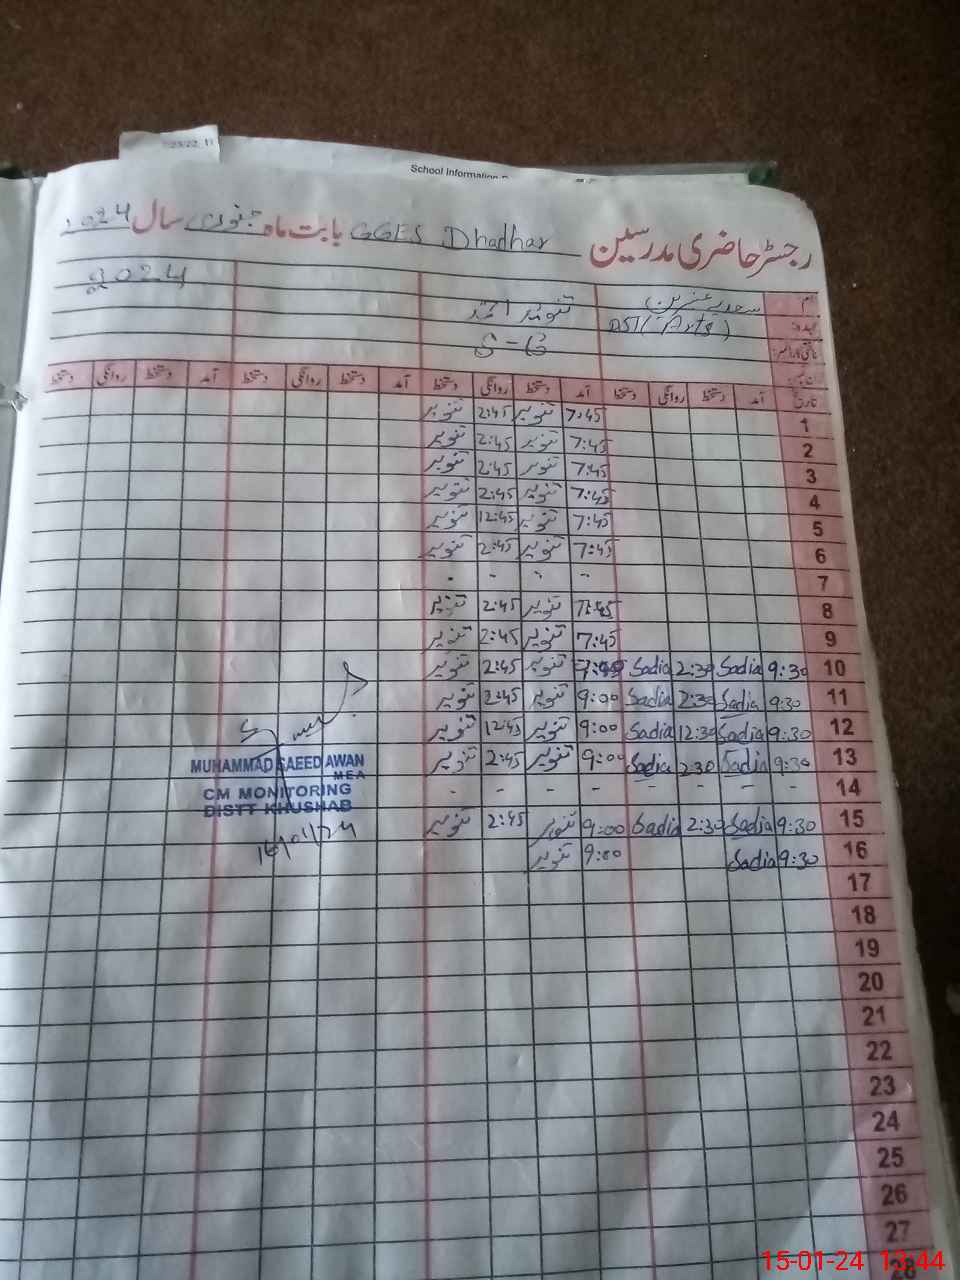 School Information
رجسٹر حاضری مدرسین GGES Dhadhar بابت ماہ جنوری سال 2024
2024
نام سعدیہ عنبرین تنویر احمد
عہدہ DST (Arts) S-G
تاریخ آمد دستخط روانگی دستخط آمد دستخط روانگی دستخط آمد دستخط روانگی دستخط آمد دستخط روانگی دستخط
1 7:45 تنویر 2:45 تنویر
2 7:45 تنویر 2:45 تنویر
3 7:45 تنویر 2:45 تنویر
4 7:45 تنویر 2:45 تنویر
5 7:45 تنویر 12:45 تنویر
6 7:45 تنویر 2:45 تنویر
7 - - - -
8 7:45 تنویر 2:45 تنویر
9 7:45 تنویر 2:45 تنویر
10 9:30 Sadia 2:30 Sadia تنویر 2:45 تنویر
11 9:30 Sadia 2:30 Sadia 9:00 تنویر 2:45 تنویر
12 9:30 Sadia 12:30 Sadia 9:00 تنویر 12:45 تنویر
13 9:30 Sadia 2:30 Sadia 9:00 تنویر 2:45 تنویر
14 - - - - - - - -
15 9:30 Sadia 2:30 Sadia 9:00 تنویر 2:45 تنویر
16 9:30 Sadia 9:00 تنویر
17
18
19
20
21
22
23
24
25
26
27
28
MUHAMMAD SAEED AWAN
MEA
CM MONITORING
DISTT KHUSHAB
16/01/24
15-01-24 13:44